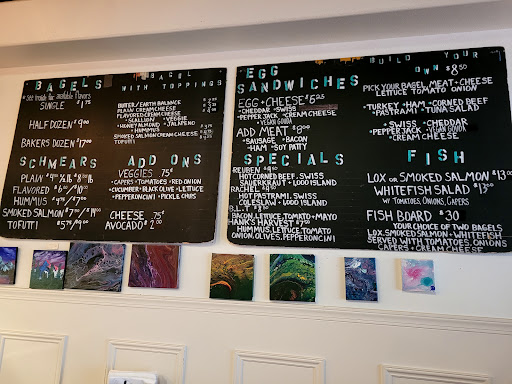 BAGELS
* See Inside for available flavors
SINGLE $1.75
HALF DOZEN $9.00
BAKERS DOZEN $17.00
BAGEL
WITH TOPPINGS
BUTTER/EARTH BALANCE
PLAIN CREAM CHEESE
FLAVORED CREAM CHEESE
• SCALLION • VEGGIE
• HONEY ALMOND • JALAPENO
HUMMUS
SMOKED SALMON CREAM CHEESE
TOFUTTI
SCHMEARS
PLAIN
FLAVORED
HUMMUS
SMOKED SALMON
TOFUTTI
ADD ONS
VEGGIES 75¢
• CAPERS • TOMATOES • RED ONION
• CUCUMBER • BLACK OLIVE • LETTUCE
• PEPPERONCINI • PICKLE CHIPS
CHEESE 75¢
AVOCADO $2.00
EGG
SANDWICHES
EGG + CHEESE
• CHEDDAR • SWISS
• PEPPER JACK • CREAM CHEESE
• VEGAN GOUDA
ADD MEAT
• SAUSAGE • BACON
• HAM • SOY PATTY
SPECIALS
REUBEN
HOT CORNED BEEF, SWISS
SAUERKRAUT + 1,000 ISLAND
RACHEL
HOT PASTRAMI, SWISS
COLESLAW + 1,000 ISLAND
B.L.T
BACON, LETTUCE, TOMATO + MAYO
HANK'S HARVEST
HUMMUS, LETTUCE, TOMATO
ONION, OLIVES, PEPPERONCINI
BUILD YOUR
OWN $8.50
PICK YOUR BAGEL, MEAT + CHEESE
LETTUCE TOMATO ONION
• TURKEY • HAM • CORNED BEEF
• PASTRAMI • TUNA SALAD
• SWISS • CHEDDAR
• PEPPER JACK • VEGAN GOUDA
• CREAM CHEESE
FISH
LOX OR SMOKED SALMON $13.00
WHITEFISH SALAD
W/ TOMATOES, ONIONS, CAPERS
FISH BOARD $30
YOUR CHOICE OF TWO BAGELS
LOX, SMOKED SALMON + WHITEFISH
SERVED WITH TOMATOES, ONIONS
CAPERS + CREAM CHEESE